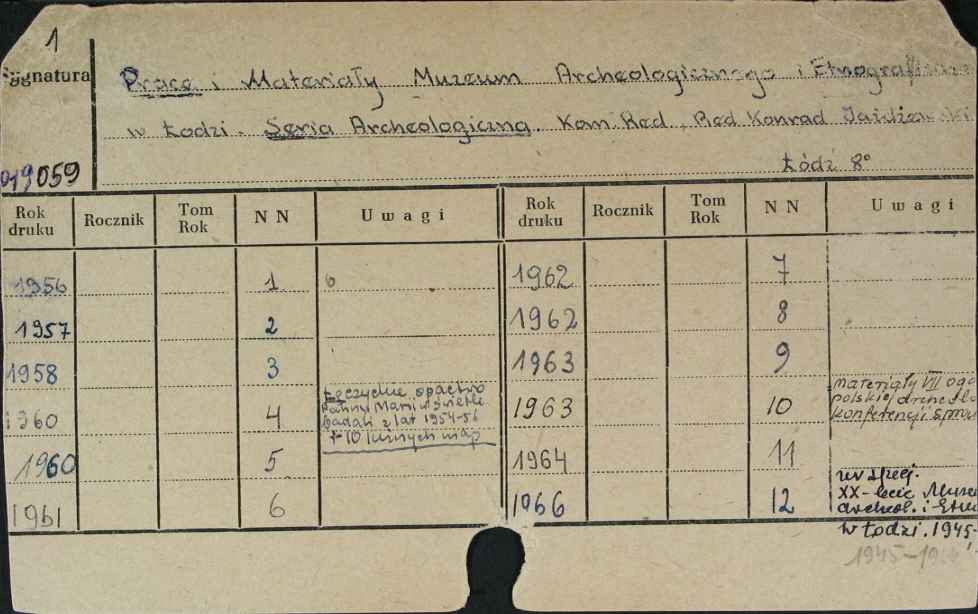 1
Sygnatura
Prace i Materiały Muzeum Archeologicznego i Etnograficzne
w Łodzi. Seria Archeologiczna. Kom. Red., Red Konrad Jażdżewski
Łódź 8°
019059
Rok druku Rocznik Tom Rok N N Uwagi Rok druku Rocznik Tom Rok N N Uwagi
1956 1 6 1962 7
1957 2 1962 8
1958 3 1963 9
1960 4 Łęczyckie opactwo 1963 10 materiały VII ogó
Panny Marii w świetle polskiej archeolo
badań z lat 1954-56 konferencji
+ 10 luźnych map
1960 5 1964 11
1961 6 1966 12
XX-lecie Muze
archeol. i Etn
w Łodzi. 1945-
1945-